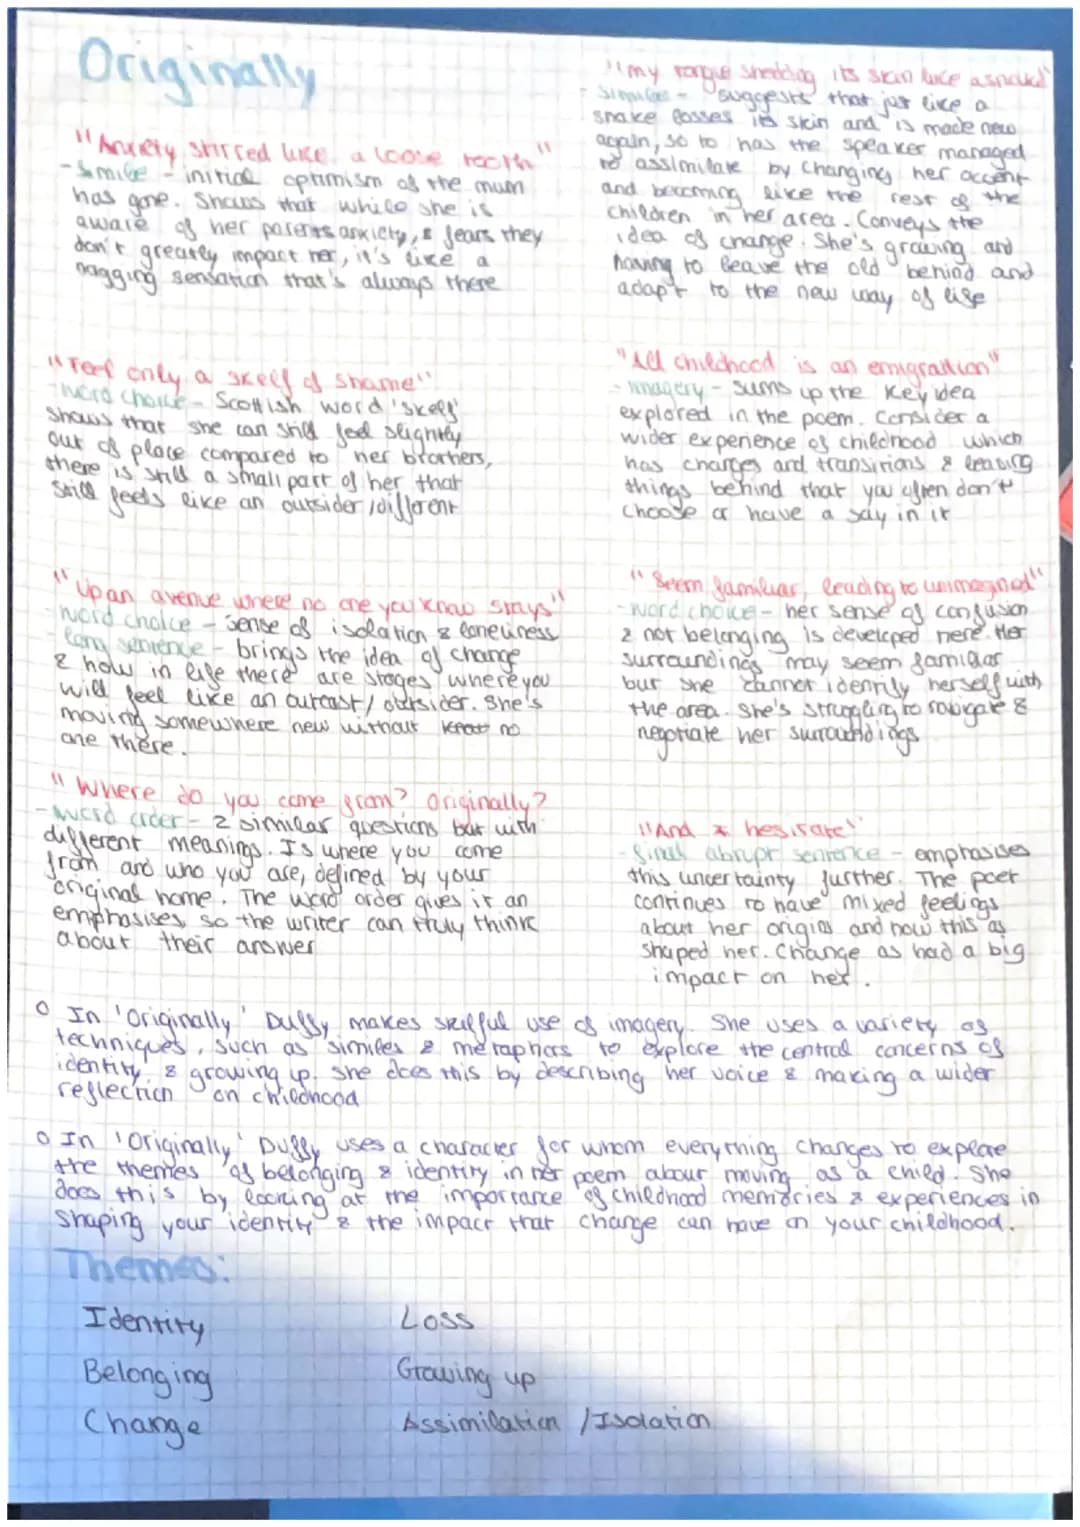 Originally
"Anxiety stirred like a loose tooth"
- Simile - initial optimism of the mum
has gone. Shows that while she is
aware of her parents anxiety, & fears they
don't greatly impact her, it's like a
nagging sensation that's always there
"Feel only a skelf of shame"
- word choice - Scottish word 'skelf'
shows that she can still feel slightly
out of place compared to her brothers,
there is still a small part of her that
still feels like an outsider/different
"Up an avenue where no one you know stays"
- word choice - sense of isolation & loneliness
- long sentence - brings the idea of change
& how in life there are stages where you
will feel like an outcast/outsider. She's
moving somewhere new without no
one there.
"Where do you come from? Originally?
- word order - 2 similar questions but with
different meanings. Is where you come
from and who you are, defined by your
original home. The word order gives it an
emphasises so the writer can truly think
about their answer
"my tongue shedding its skin like a snake"
- Similes - suggests that just like a
snake losses its skin and is made new
again, so to has the speaker managed
to assimilate by changing her accent
and becoming like the rest of the
children in her area. Conveys the
idea of change. She's growing and
having to leave the old behind and
adapt to the new way of life
"All childhood is an emigration"
- Imagery - sums up the key idea
explored in the poem. Consider a
wider experience of childhood which
has changes and transitions & leaving
things behind that you often don't
choose or have a say in it
"Seem familiar, leading to unimagined"
- word choice - her sense of confusion
& not belonging is developed here. Her
surroundings may seem familiar
but she cannot identify herself with
the area. She's struggling to navigate &
negotiate her surroundings
"And I hesitate"
- final abrupt sentence - emphasises
this uncertainty further. The poet
continues to have mixed feelings
about her origins and how this as
shaped her. Change as had a big
impact on her.
o In 'Originally' Duffy makes skilful use of imagery. She uses a variety of
techniques, such as similes & metaphors to explore the central concerns of
identity & growing up. She does this by describing her voice & making a wider
reflection on childhood
o In 'Originally' Duffy uses a character for whom everything changes to explore
the themes of belonging & identity in her poem about moving as a child. She
does this by looking at the importance of childhood memories & experiences in
shaping your identity & the impact that change can have on your childhood.
Themes:
Identity Loss
Belonging Growing up
Change Assimilation /Isolation